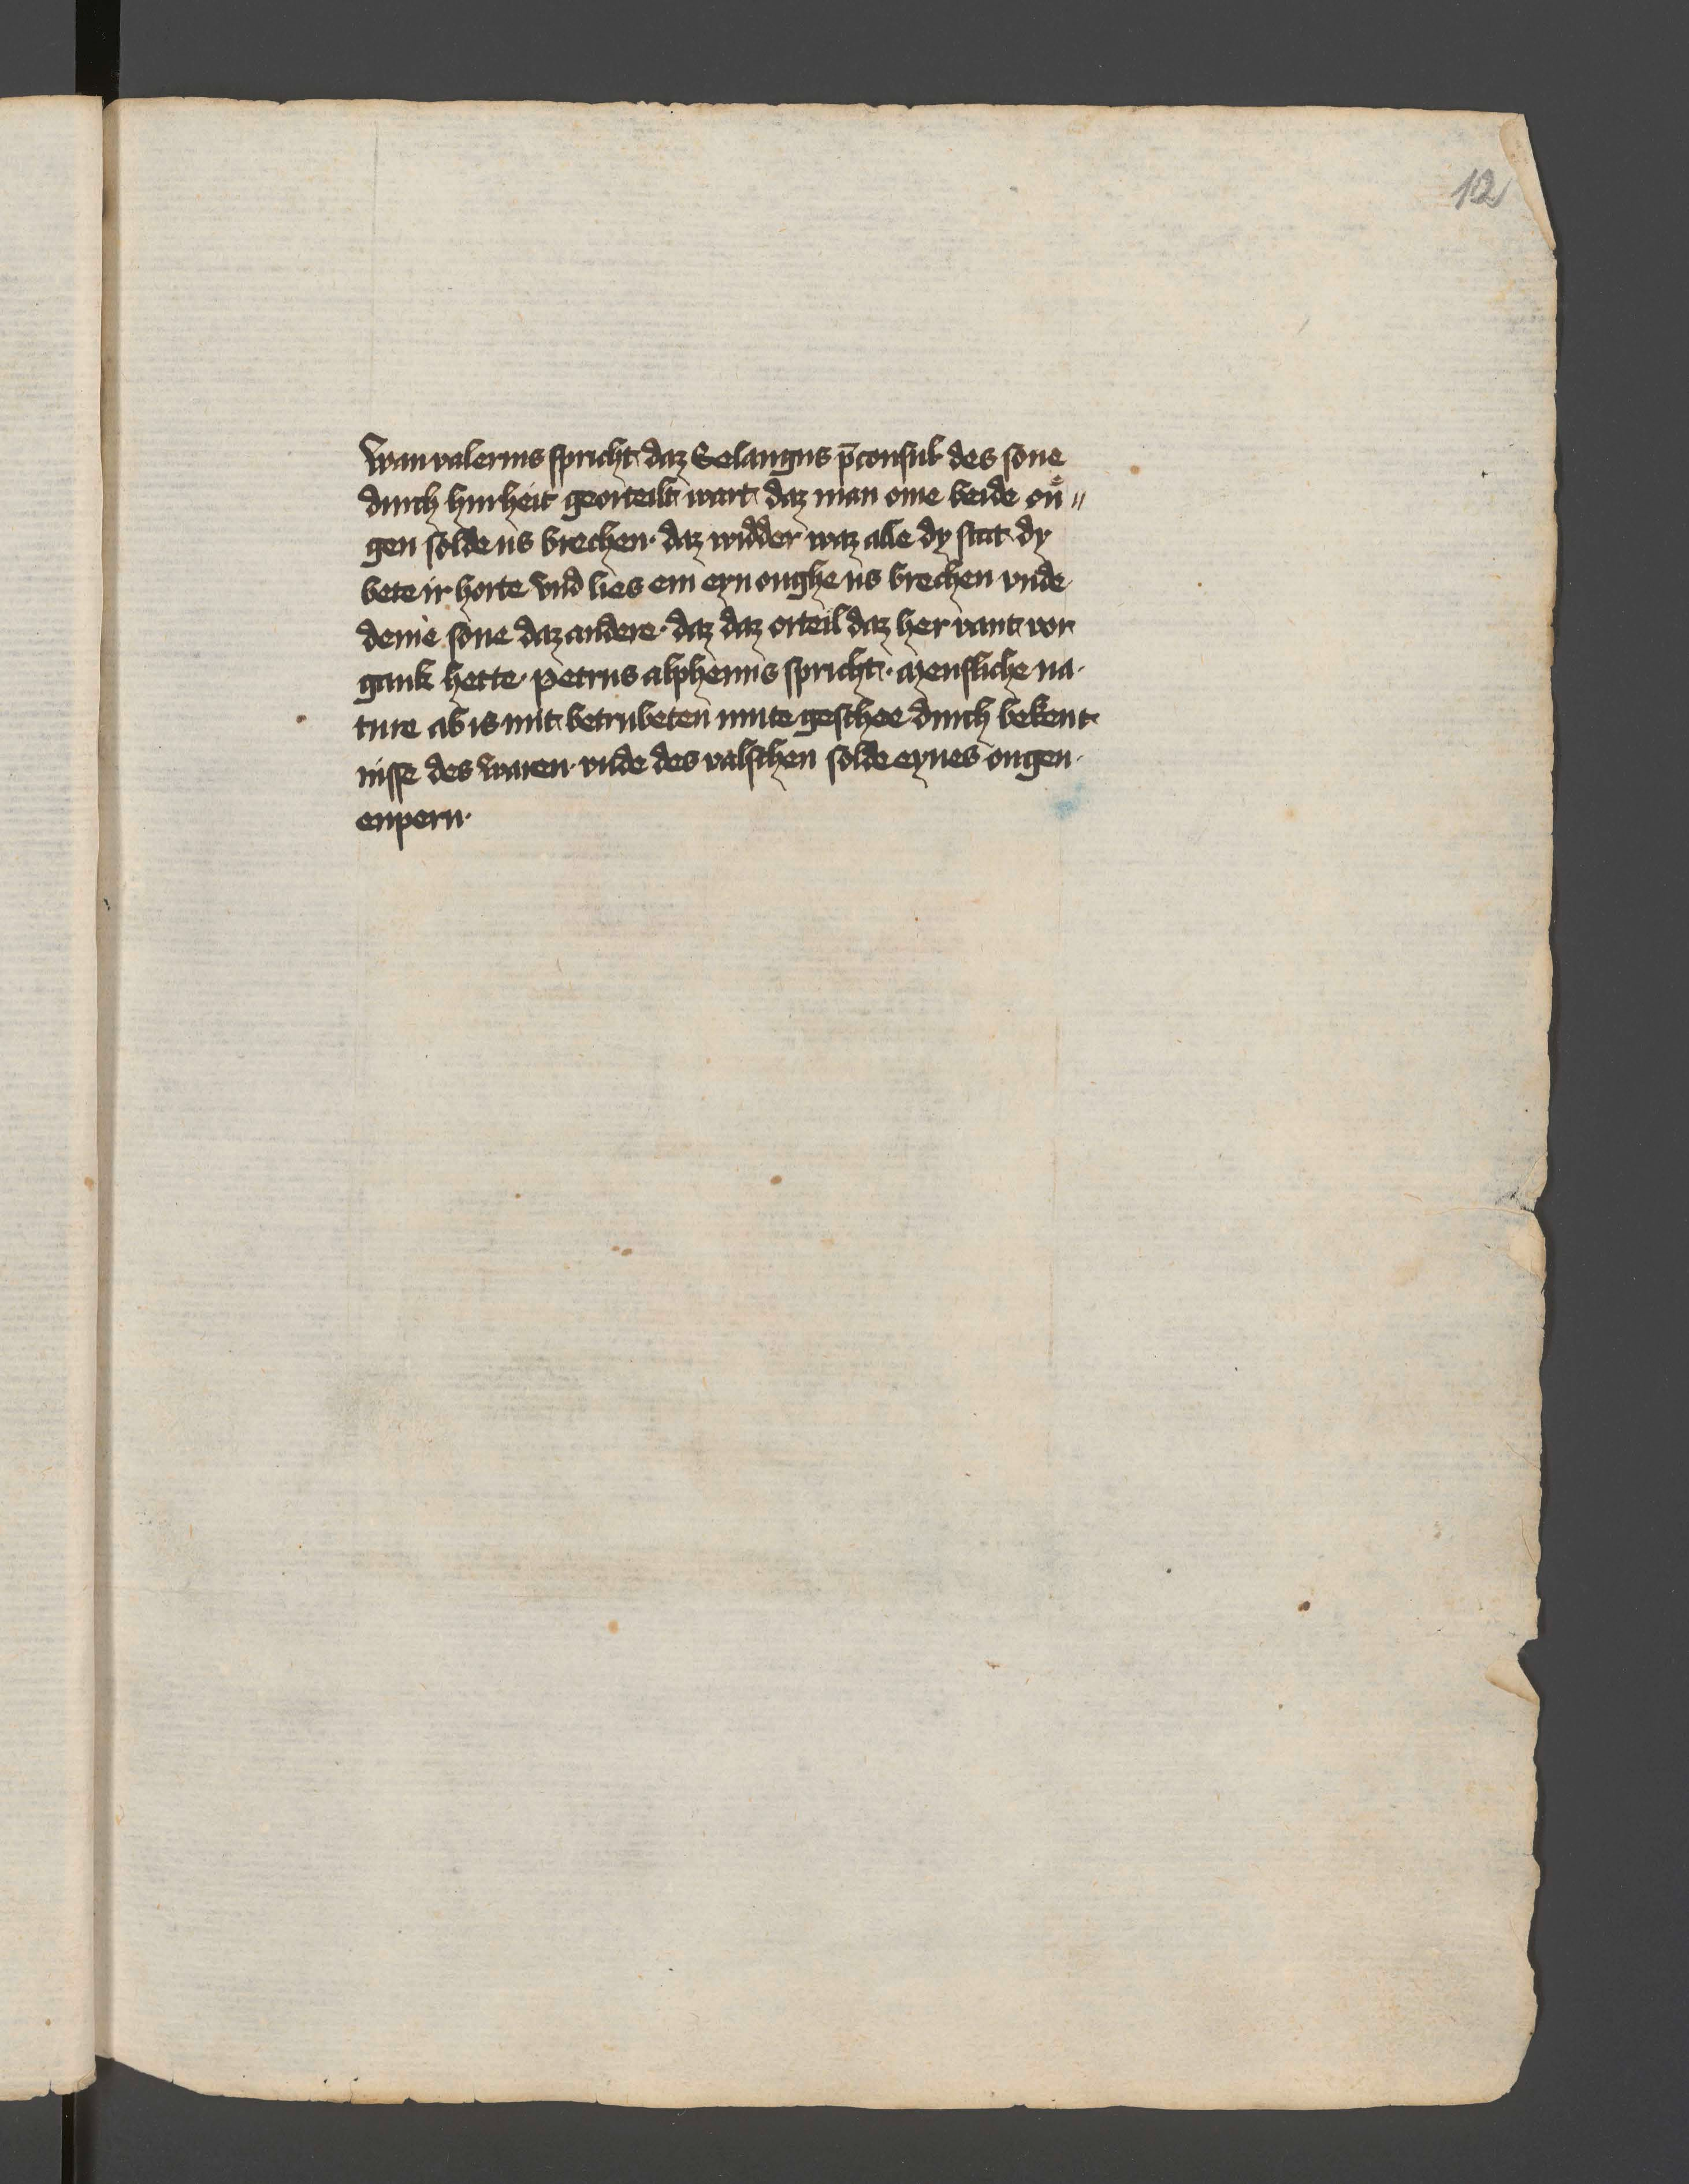 12
Wan valerius spricht daz Selangus p̄consul des sone
durch hurheit georteilt wart daz man ome beide ou̇ //
gen solde us brechen · daz widder waz alle dy stat dy
bete ir horte vnd lies em eyn oughe us brechen vnde
deme sone daz andere · daz daz orteil daz her vant vor
gank hette · petrus alphenus spricht · mensliche na ·
ture ab is mit betrubeten mute geschee durch bekent
nisse des waren · vnde des valschen solde eynes ougen ·
enpern ·